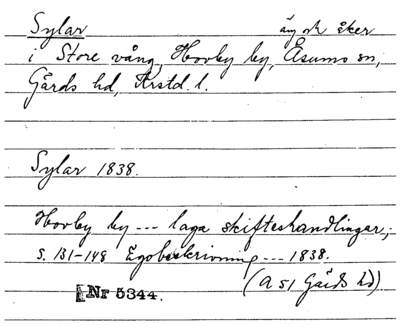 Sylar äng och åker
i Store vång, Hovby by, Åsumo sn,
Gårds hd, Krstd. l.
Sylar 1838.
Hovby by --- laga skifteshandlingar,
s. 131-148 Egobeskrivning --- 1838.
(A 51 Gärds hd)
Nr 5344.